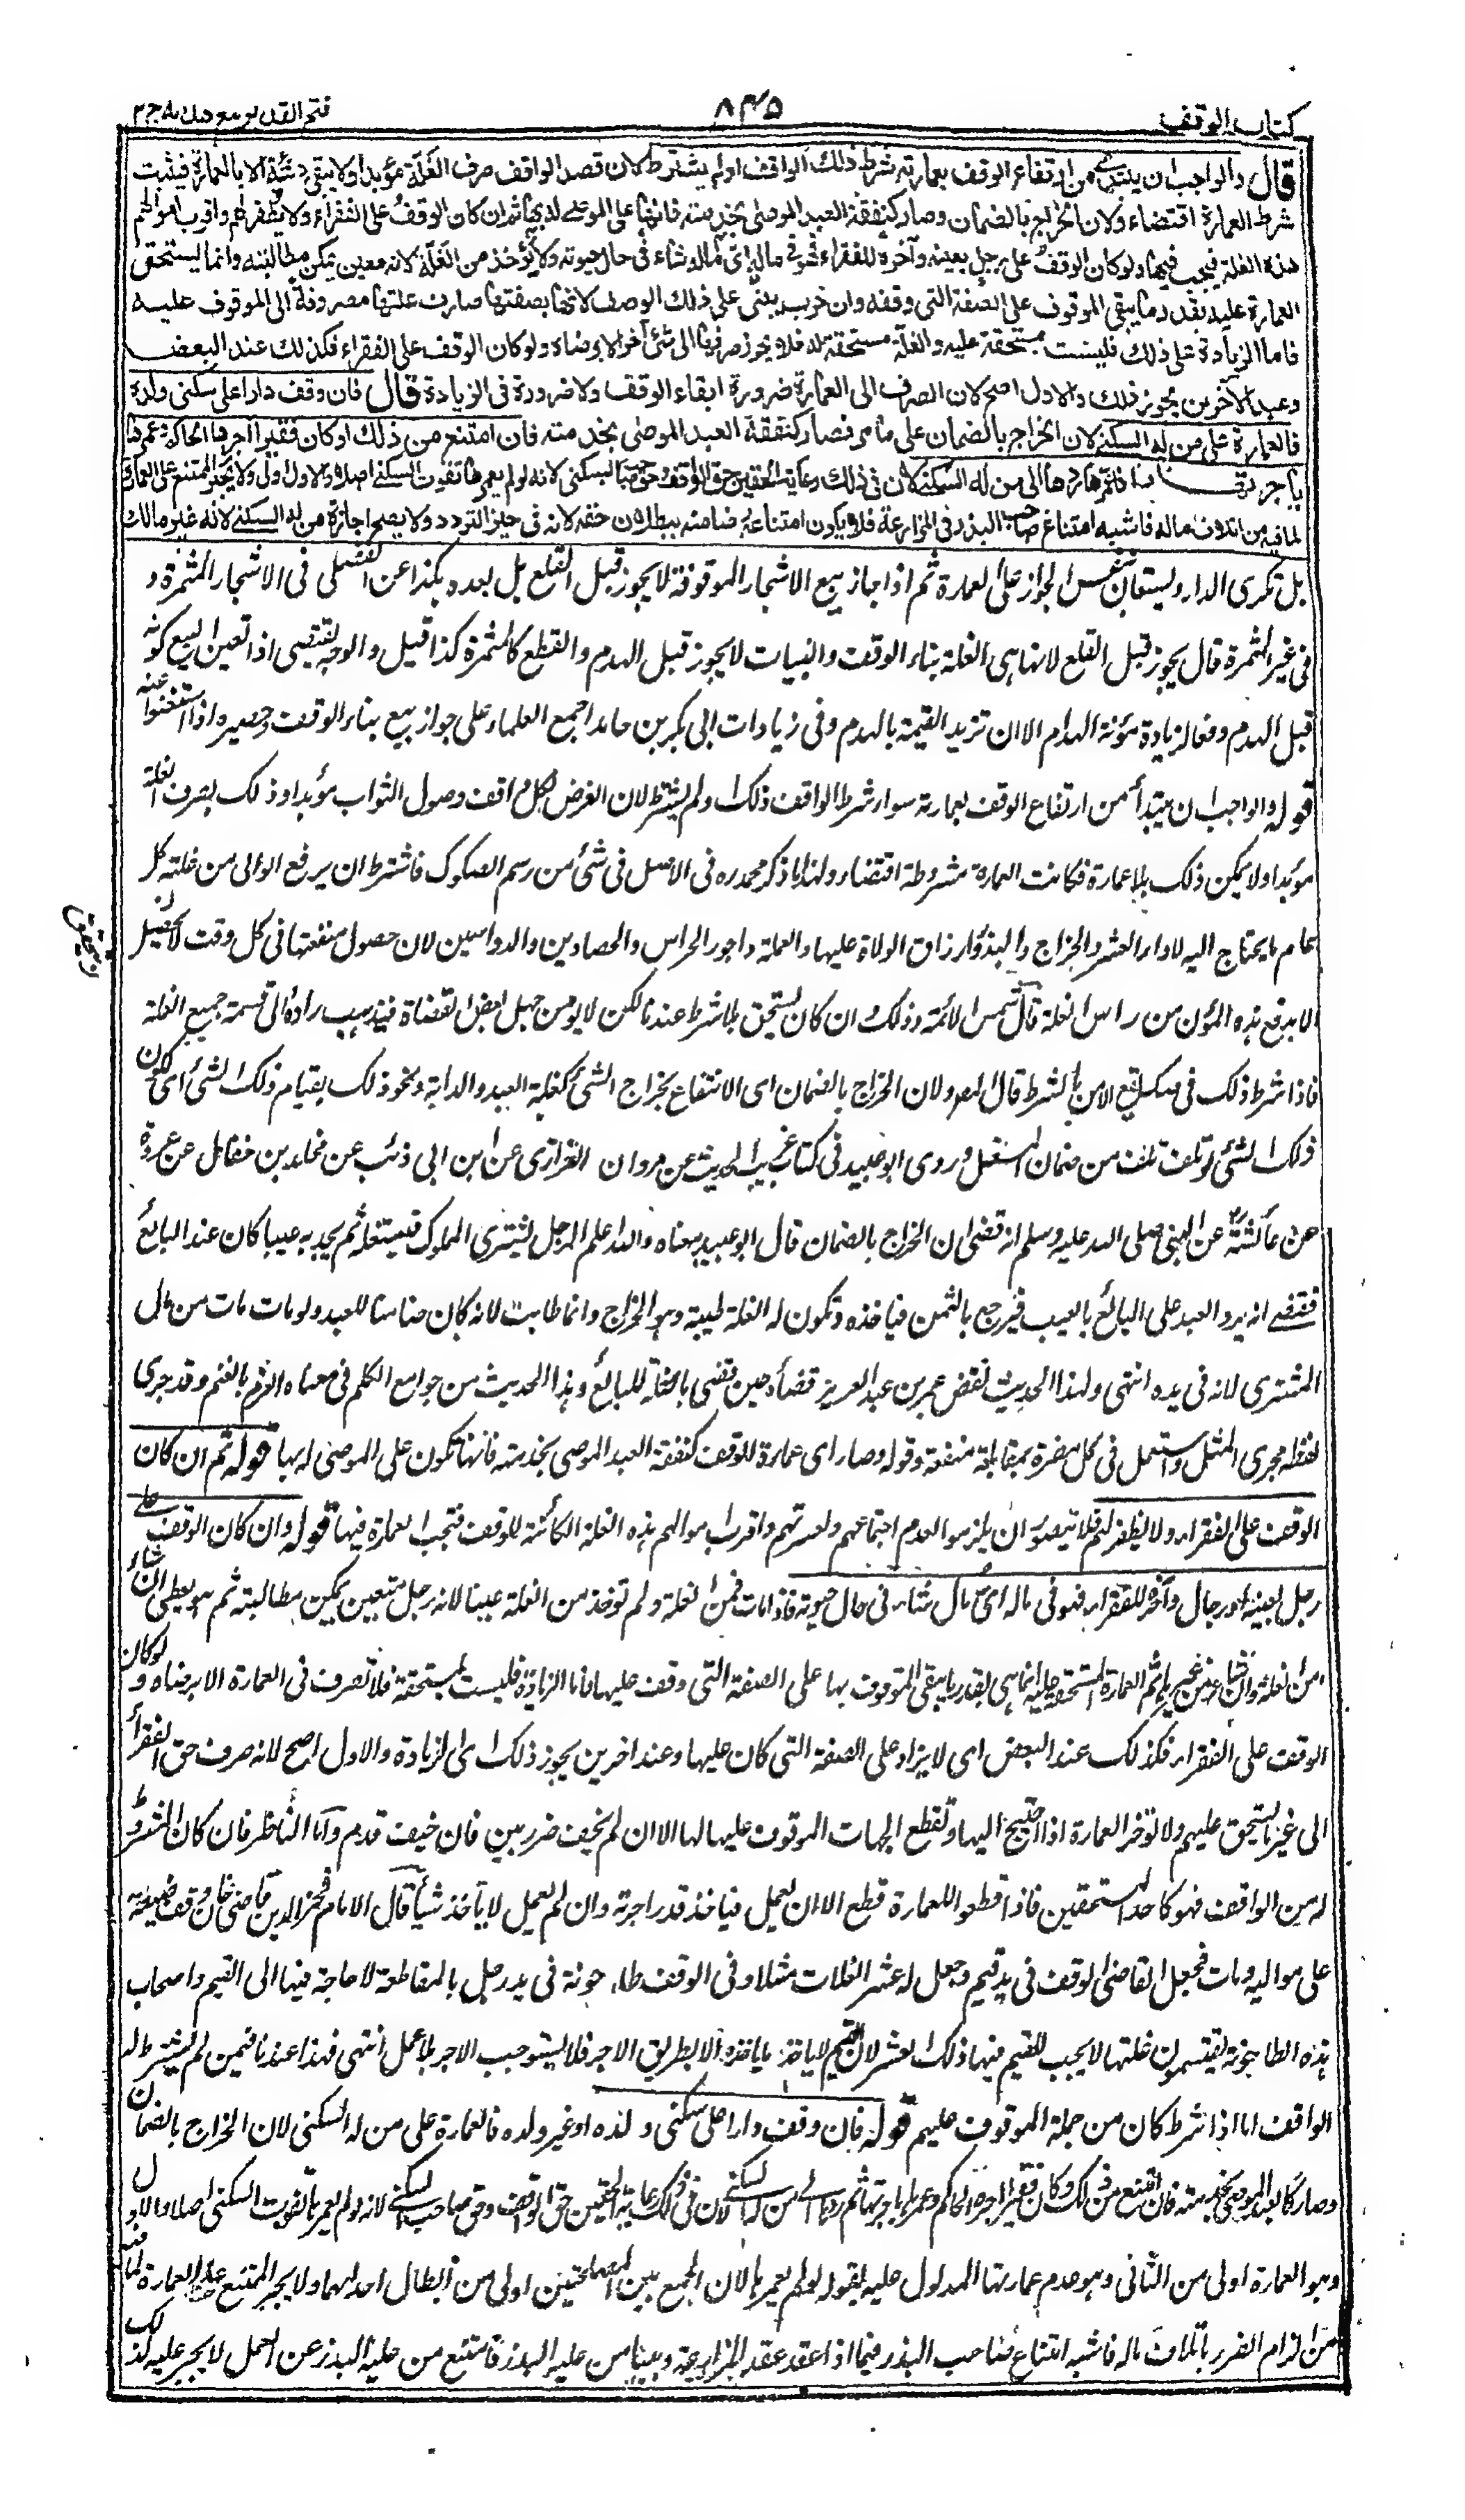 كتاب الوقف
٨٣٥
فتح القدير مع هدايه ج ٢
قال والواجب ان يبتدئ من ارتفاع الوقف بعمارته شرط ذلك الواقف اولم يشترط لان قصد الواقف صرف الغلة مؤبدا ولا يبقى دائمة الا بالعمارة فيثبت
شرط العمارة اقتضاء ولان الخراج بالضمان وصار كنفقة العبد الموصى بخدمته فانها على الموصى له بها ثم ان كان الوقف على الفقراء ولا يظفر بهم واقرب اموالهم
هذه الغلة فيجب فيها ولو كان الوقف على رجل بعينه وآخره للفقراء فهو في ماله اى ماله شاء فى حال حيوته ولا يؤخذ من الغلة لانه معين يمكن مطالبته وانما يستحق
العمارة عليه بقدر ما يبقى الموقوف على الصفة التى وقفه وان خرب يبنى على ذلك الوصف لانها بصفتها صارت غلتها مصروفة الى الموقوف عليه
فاما الزيادة على ذلك فليست بمستحقة عليه والغلة مستحقة له فلا يجوز صرفها الى شئ آخر الا برضاه ولو كان الوقف على الفقراء فكذلك عند البعض
وعند الآخرين يجوز ذلك والاول اصح لان الصرف الى العمارة ضرورة ابقاء الوقف ولا ضرورة فى الزيادة قال فان وقف دارا على سكنى ولده
فالعمارة على من له السكنى لان الخراج بالضمان على ما مر فصار كنفقة العبد الموصى بخدمته فان امتنع من ذلك او كان فقيرا آجرها الحاكم وعمرها
باجرتها فاذا عمرها ردها الى من له السكنى لان فى ذلك رعاية الحقين حق الواقف وحق صاحب السكنى لانه لو لم يعمرها تفوت السكنى اصلا والاول اولى ولا يجبر الممتنع على العمارة
لما فيه من اتلاف ماله فاشبه امتناع صاحب البذر فى المزارعة فلا يكون امتناعه رضا منه ببطلان حقه لانه فى حيز التردد ولا يصح اجازة من له السكنى لانه غير مالك
بل تكرى الدار ويستعان على العمارة ثم اذا جاز بيع الاشجار الموقوفة لا يجوز قبل القلع بل بعده هكذا عن الفضلى فى الاشجار المثمرة و
فى غير المثمرة قال يجوز قبل القلع لانها هى الغلة بناء الوقف والنبات لا يجوز قبل الهدم والقطع كالمثمرة كذا قيل والوجه يقتضى اذا تعين البيع كونه
قبل الهدم دفعا لزيادة مؤنة الهدم الا ان تزيد القيمة بالهدم وفى زيادات ابى بكر بن حامد اجمع العلماء على جواز بيع بناء الوقف وحصيره اذا استغنوا عنه
قوله والواجب ان يبتدأ من ارتفاع الوقف بعمارته سواء شرط الواقف ذلك او لم يشترط لان الغرض لكل واقف وصول الثواب مؤبدا وذلك بصرف الغلة
مؤبدا ولا يمكن ذلك بلا عمارة فكانت العمارة مشروطة اقتضاء ولهذا ذكر محمد ره فى الاصل فى شئ من رسم الصكوك فاشترط ان يرفع الوالى من غلته كل
عام ما يحتاج اليه لاداء العشر والخراج والبذر وارزاق الولاة عليها والعملة واجور الحراس والحصادين والدواسين لان حصول منفعتها فى كل وقت لا يتحقق
الا بدفع هذه المؤن من راس الغلة قال شمس الائمة وذلك ان كان يستحق بلا شرط عندنا لكن لا يؤمن جهل بعض القضاة فيذهب رأيه الى قسمة جميع الغلة
فاذا شرط ذلك فى صكه يقع الامن بالشرط قال المص ولان الخراج بالضمان اى الانتفاع بخراج الشئ كغلة العبد والدابة ونحو ذلك بقيام ذلك الشئ اى كون
ذلك الشئ لو تلف تلف من ضمان المستغل وروى ابو عبيد فى كتاب غريب الحديث عن مروان الفزارى عن ابن ابى ذئب عن مخلد بن خفاف عن عروة
عن عائشة عن النبى صلى الله عليه وسلم انه قضى ان الخراج بالضمان قال ابو عبيد معناه والله اعلم الرجل يشترى المملوك فيستغله ثم يجد به عيبا كان عند البائع
فقضى انه يرد العبد على البائع بالعيب فيرجع بالثمن فياخذه وتكون له الغلة طيبة وهو الخراج وانما طابت لانه كان ضامنا للعبد ولو مات مات من مال
المشترى لانه فى يده انتهى ولهذا الحديث نقض عمر بن عبد العزيز قضاءه حين قضى بالغلة للبائع وهذا الحديث من جوامع الكلم فى معناه الغرم بالغنم وقد جرى
لفظه مجرى المثل واستعمل فى كل مضرة بمقابلة منفعة وقوله وصار اى عمارة الوقف كنفقة العبد الموصى بخدمته فانها تكون على الموصى له بها قوله ثم ان كان
الوقف على الفقراء ولا يظفر بهم فلا يتصور ان يلزموا لعدم اجتماعهم ولعسرتهم واقرب اموالهم هذه الغلة الكائنة للوقف فتجب العمارة فيها قوله وان كان الوقف على
رجل بعينه او رجال وآخره للفقراء فهو فى ماله اى مال شاء فى حال حيوته فاذا مات فمن الغلة ولم تؤخذ من الغلة عينا لانه رجل متعين يمكن مطالبته ثم هو يعطى ان شاء
من الغلة وان شاء من غيرها ثم العمارة المستحقة عليه انما هى بقدر ما يبقى الموقوف بها على الصفة التى وقف عليها فاما الزيادة فليست بمستحقة فلا تصرف فى العمارة الا برضاه ولو كان
الوقف على الفقراء فكذلك عند البعض اى لا يزاد على الصفة التى كان عليها وعند اخرين يجوز ذلك اى الزيادة والاول اصح لانه صرف حق الفقراء
الى غير ما يستحق عليهم ولا تؤخر العمارة اذا احتيج اليها وتقطع الجهات الموقوف عليها لها الا ان لم يخف ضرر بين فان خيف قدم واما الناظر فان كان المشروط
له من الواقف فهو كاحد المستحقين فاذا قطعوا للعمارة قطع الا ان يعمل فياخذ قدر اجرته وان لم يعمل لا يأخذ شيأ قال الامام فخر الدين قاضى خان وقف ضيعة
على مواليه ومات فجعل القاضى الوقف فى يد قيم وجعل له عشر الغلات مثلا وفى الوقف طاحونة فى يد رجل بالمقاطعة لا حاجة فيها الى القيم واصحاب
هذه الطاحونة يقتسمون غلتها لا يجب للقيم فيها ذلك العشر لان القيم لا ياخذ ما ياخذه الا بطريق الاجر فلا يستوجب الاجر بلا عمل انتهى فهذا عندنا فيمن لم يشترط له
الواقف اما اذا شرط كان من جملة الموقوف عليهم قوله فان وقف دارا على سكنى ولده او غير ولده فالعمارة على من له السكنى لان الخراج بالضمان
وصار كالعبد الموصى بخدمته فان امتنع من ذلك او كان فقيرا آجرها الحاكم وعمرها باجرتها ثم ردها الى من له السكنى لان فى ذلك رعاية الحقين حق الواقف وحق صاحب السكنى لانه لو لم يعمرها تفوت السكنى اصلا والاول
وهو العمارة اولى من الثانى وهو عدم عمارتها المدلول عليه بقوله لو لم يعمرها لان الجمع بين المصلحتين اولى من ابطال احدهما ولا يجبر الممتنع على العمارة لما فيه
من الزام الضرر باتلاف ماله فاشبه امتناع صاحب البذر فيما اذا عقد عقد المزارعة وبينا من عليه البذر فامتنع من عليه البذر عن العمل لا يجبر عليه لذلك